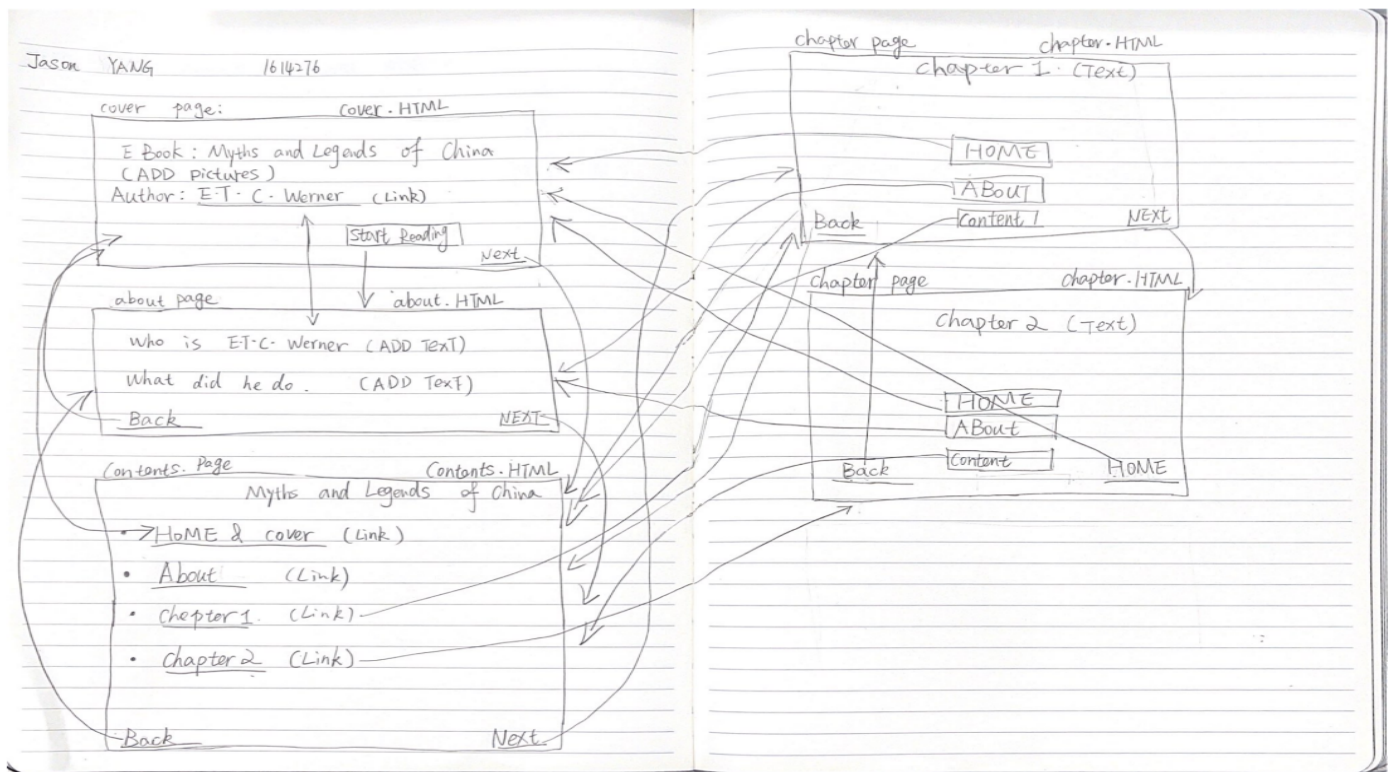 Jason YANG 1614276
cover page: cover.HTML
E Book: Myths and Legends of China
(ADD pictures)
Author: E.T.C. Werner (Link)
Start Reading
Next
about page about.HTML
Who is E.T.C. Werner (ADD TexT)
What did he do. (ADD TexT)
Back NEXT
Contents. Page Contents.HTML
Myths and Legends of China
• HOME & cover (Link)
• About (Link)
• Chepter 1. (Link)
• Chapter 2 (Link)
Back Next
chapter page chapter.HTML
Chapter 1. (Text)
HOME
ABOUT
Back Content 1 NEXT
chapter page chapter.HTML
Chapter 2 (Text)
HOME
ABout
Content
Back HOME